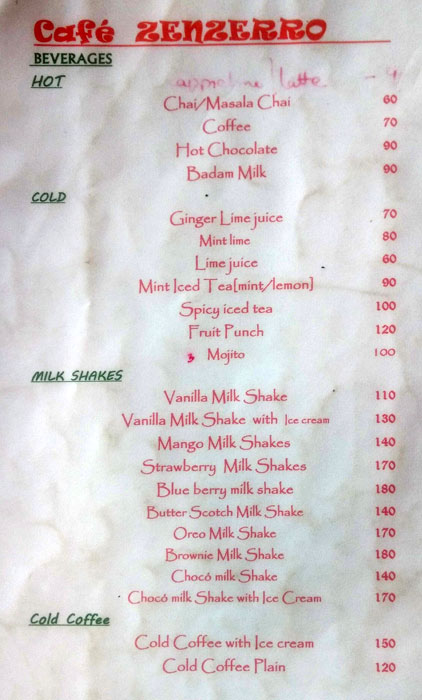 Café ZENZERRO
BEVERAGES
HOT
latte
Chai/Masala Chai 60
Coffee 70
Hot Chocolate 90
Badam Milk 90
COLD
Ginger Lime juice 70
Mint lime 80
Lime juice 60
Mint Iced Tea[mint/lemon] 90
Spicy iced tea 100
Fruit Punch 120
Mojito 100
MILK SHAKES
Vanilla Milk Shake 110
Vanilla Milk Shake with Ice cream 130
Mango Milk Shakes 140
Strawberry Milk Shakes 170
Blue berry milk shake 180
Butter Scotch Milk Shake 140
Oreo Milk Shake 170
Brownie Milk Shake 180
Chocó milk Shake 140
Chocó milk Shake with Ice Cream 170
Cold Coffee
Cold Coffee with Ice cream 150
Cold Coffee Plain 120